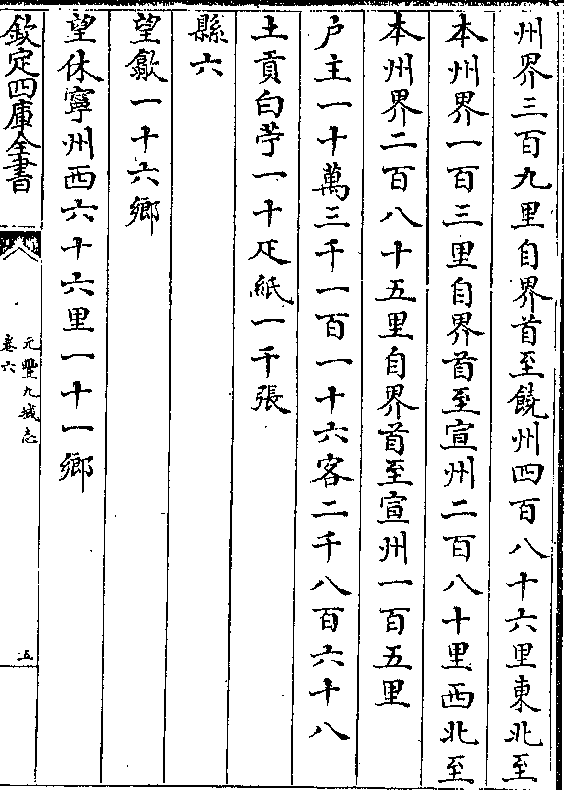 州界三百九里自界首至饒州四百八十六里東北至
本州界一百三里自界首至宣州二百八十里西北至
本州界二百八十五里自界首至宣州一百五里
户主一十萬三千一百一十六客二千八百六十八
土貢白苧一十疋紙一千張
縣六
望歙一十六鄉
望休寧州西六十六里一十一鄉
欽定四庫全書
元豐九域志
卷六
五